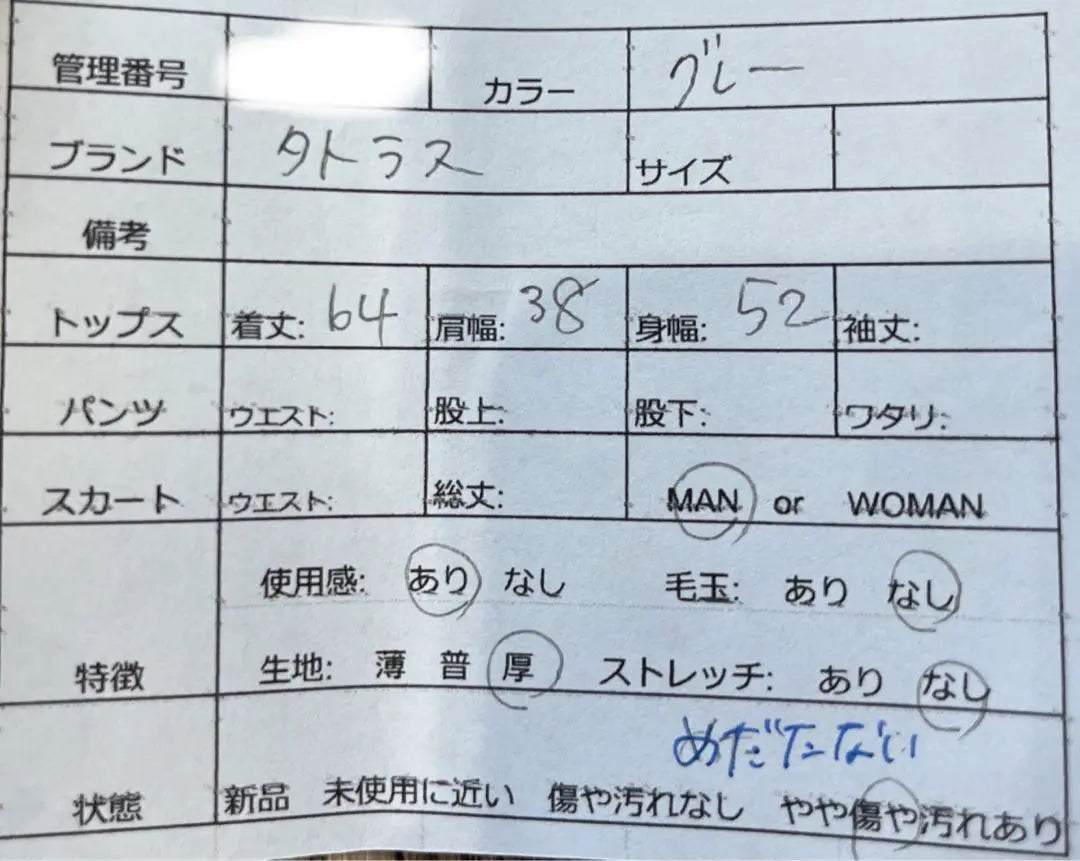 管理番号 カラー グレー
ブランド タトラス サイズ
備考
トップス 着丈: 64 肩幅: 38 身幅: 52 袖丈:
パンツ ウエスト: 股上: 股下: ワタリ:
スカート ウエスト: 総丈: MAN or WOMAN
使用感: あり なし 毛玉: あり なし
特徴 生地: 薄 普 厚 ストレッチ: あり なし
めだたない
状態 新品 未使用に近い 傷や汚れなし やや傷や汚れあり